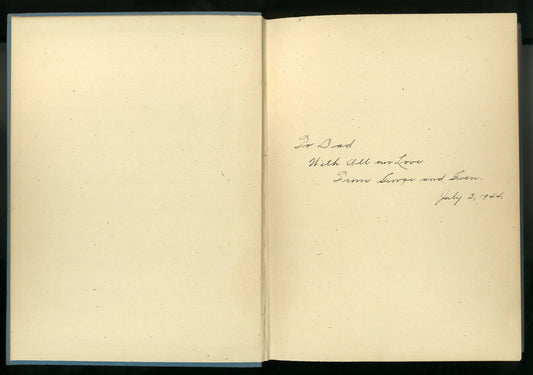 To Dad
With All our Love
From George and Gwen.
July 3, 1944.